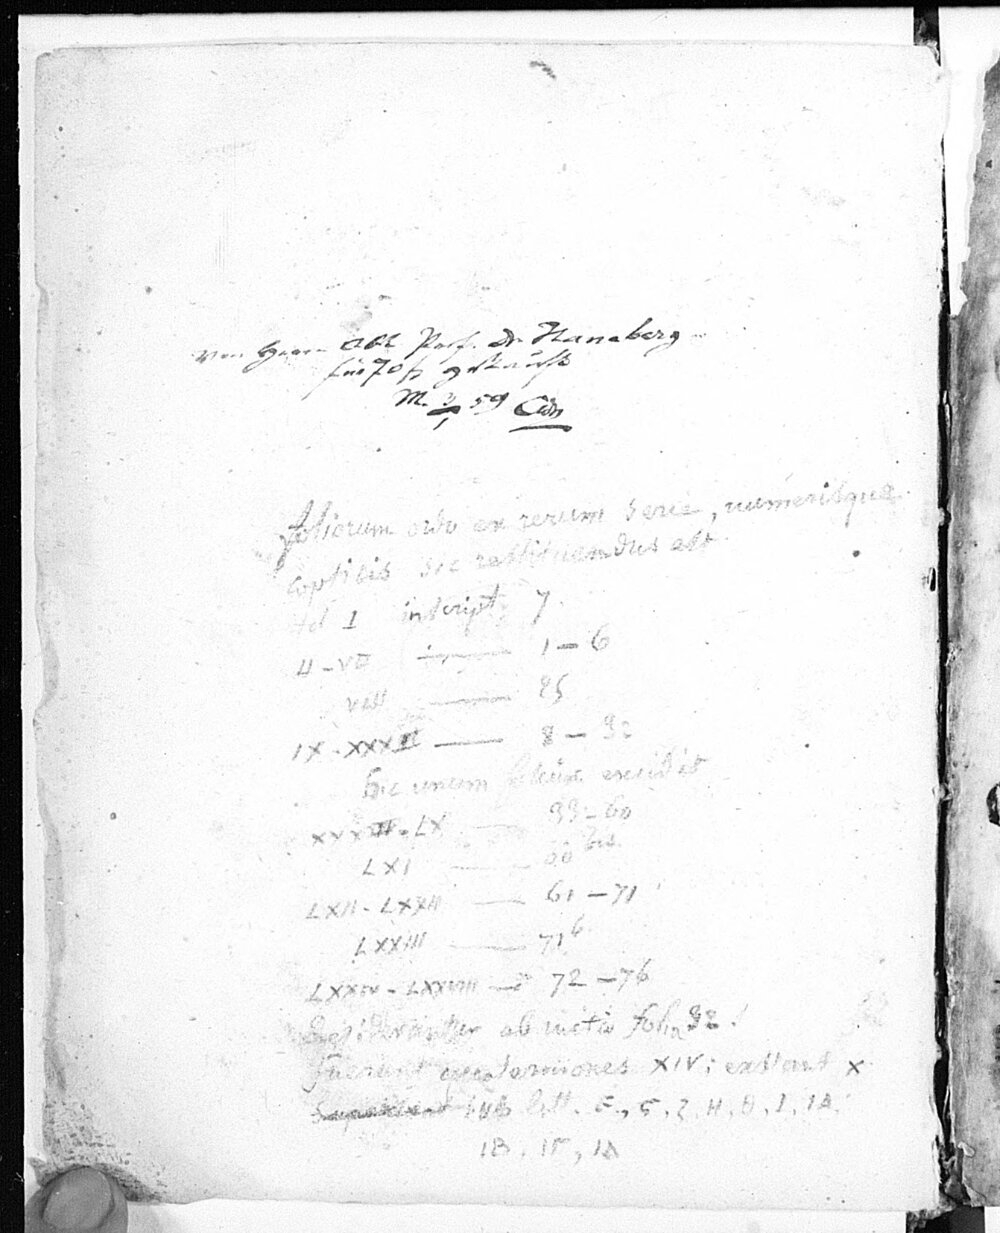 von Herrn Abt Prof. Dr Haneberg
für 70 f gekauft
M. 59
foliorum ordo ex rerum serie, numerisque
copticis sic restituendus est
fol I inscript. 7.
II - VII 1 - 6
VIII 25
IX - XXXIII 8 - 32
Hic unum folium excidit
LX 33 - 60
LXI 60 bis
LXII - LXXII 61 - 71
LXXIII 71 b
LXXIV - LXXVIII 72 - 76
Desiderantur ab initio folia 32!
fuerunt quaterniones XIV; exstant X
sub litt. E, 5, Z, H, Θ, I, IA.
IB. IΓ, IΔ